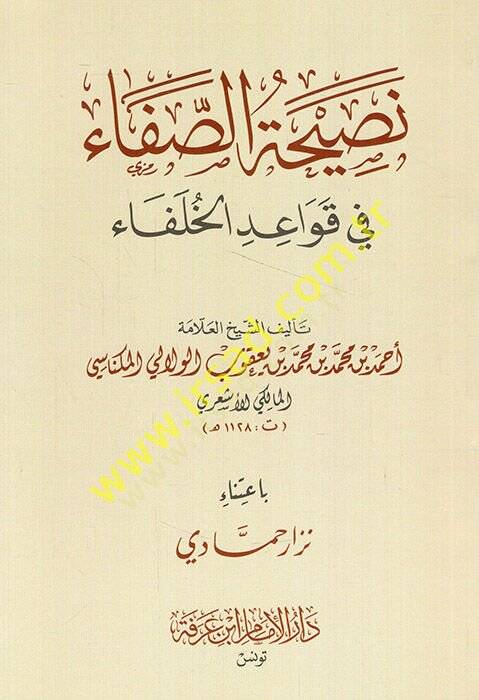 نَصِيحَةُ الصَّفَاءِ
في قَوَاعِدِ الخُلَفَاء
تأليف الشيخ العلامة
أحمد بن محمد بن محمد بن يعقوب الولالي المكناسي
المالكي الأشعري
(ت: ١١٢٨ هـ)
باعتناء
نزار حمَّادي
دار الإمام ابن عرفة
تونس
www.irsad.com.tr